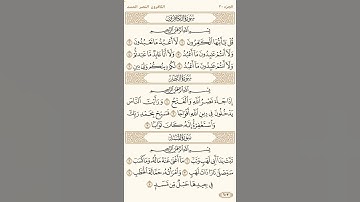 الجزء ٣٠ الكافرون النصر المسد
سُورَةُ الكَافِرُونَ
بِسْمِ اللَّهِ الرَّحْمَٰنِ الرَّحِيمِ
قُلْ يَا أَيُّهَا الْكَافِرُونَ ١ لَا أَعْبُدُ مَا تَعْبُدُونَ ٢
وَلَا أَنتُمْ عَابِدُونَ مَا أَعْبُدُ ٣ وَلَا أَنَا عَابِدٌ مَّا عَبَدتُّمْ ٤
وَلَا أَنتُمْ عَابِدُونَ مَا أَعْبُدُ ٥ لَكُمْ دِينُكُمْ وَلِيَ دِينِ ٦
سُورَةُ النَّصْرِ
بِسْمِ اللَّهِ الرَّحْمَٰنِ الرَّحِيمِ
إِذَا جَاءَ نَصْرُ اللَّهِ وَالْفَتْحُ ١ وَرَأَيْتَ النَّاسَ
يَدْخُلُونَ فِي دِينِ اللَّهِ أَفْوَاجًا ٢ فَسَبِّحْ بِحَمْدِ رَبِّكَ
وَاسْتَغْفِرْهُ إِنَّهُ كَانَ تَوَّابًا ٣
سُورَةُ المَسَدِ
بِسْمِ اللَّهِ الرَّحْمَٰنِ الرَّحِيمِ
تَبَّتْ يَدَا أَبِي لَهَبٍ وَتَبَّ ١ مَا أَغْنَىٰ عَنْهُ مَالُهُ وَمَا كَسَبَ ٢
سَيَصْلَىٰ نَارًا ذَاتَ لَهَبٍ ٣ وَامْرَأَتُهُ حَمَّالَةَ الْحَطَبِ ٤
فِي جِيدِهَا حَبْلٌ مِّن مَّسَدٍ ٥
٦٠٣